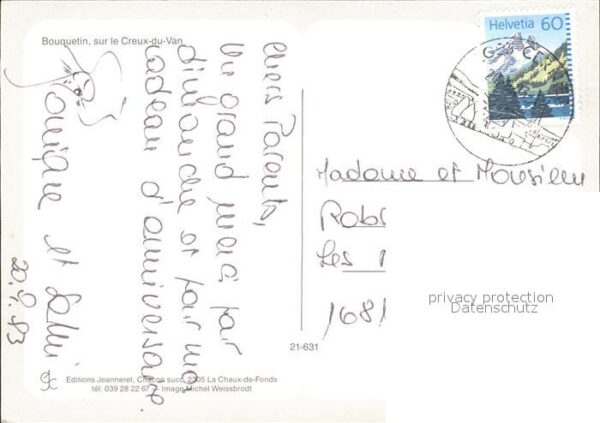 Bouquetin, sur le Creux-du-Van
Chers Parents,
Un grand merci par
dimanche et par mon
cadeau d'anniversaire.
et
20.9.93
Editions Jeanneret, Chacon succ. 2305 La Chaux-de-Fonds
tél. 039 28 22 67 – Image Michel Weissbrodt
21-631
Helvetia 60
Madame et Monsieur
Robr
Les
1681
privacy protection
Datenschutz